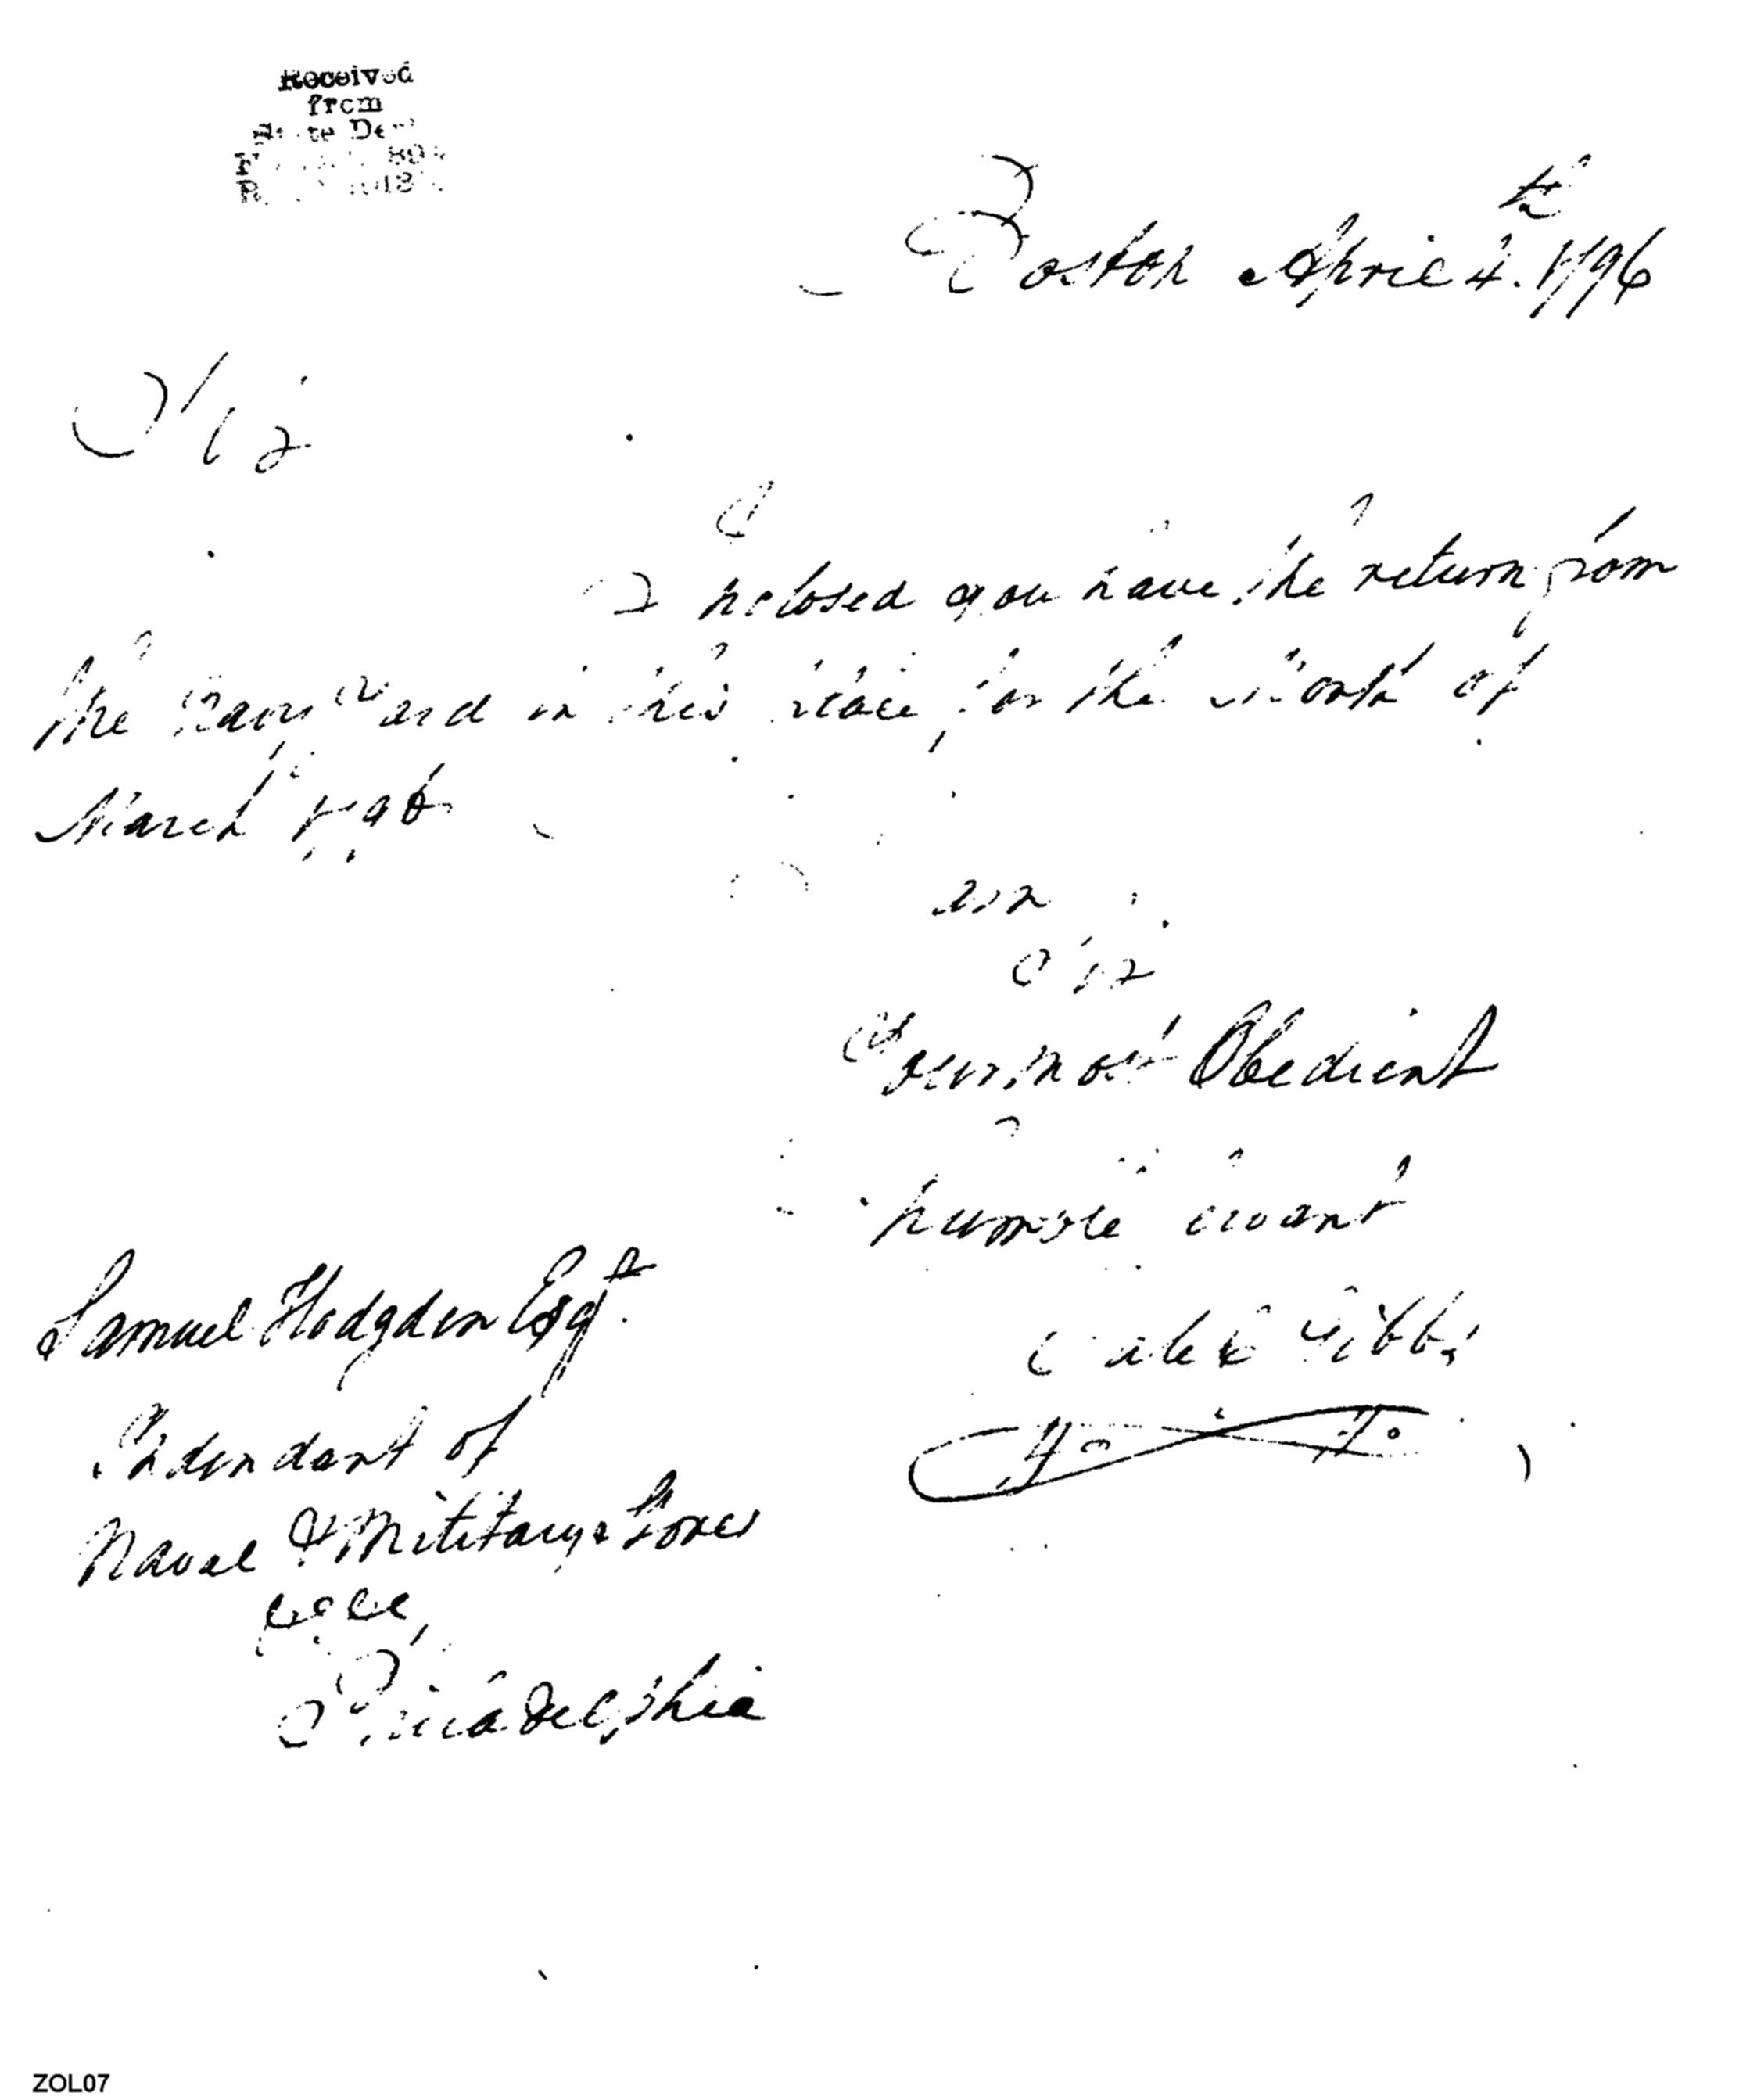 Received
from
Boston April 4.th 1796
Sir
Inclosed you have the return from
the Navy Yard in this place for the month of
March 1796
Sir
Your most Obedient
humble servant
Caleb Gibbs
Samuel Hodgdon Esqr.
Intendant of
Naval & Military Stores
Philadelphia
ZOL07